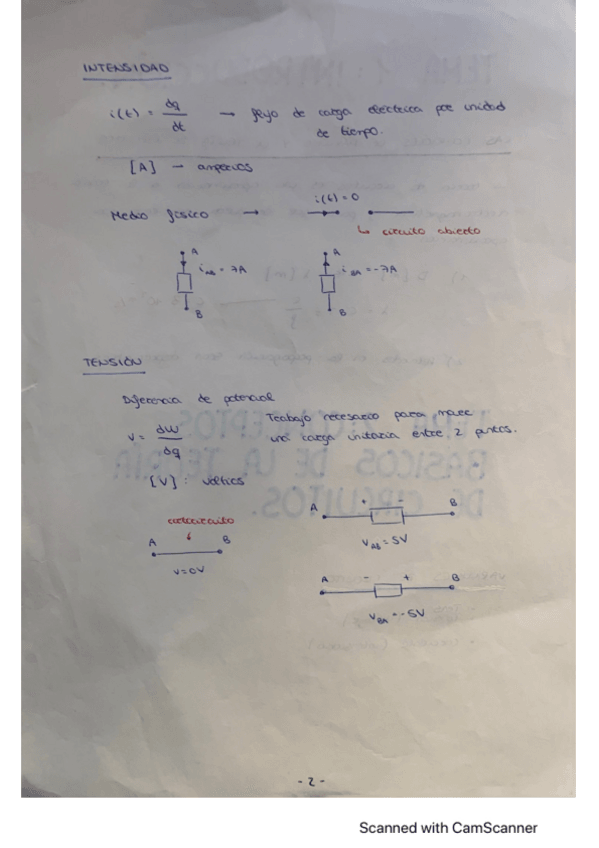 INTENSIDAD
i(t) = dq/dt → flujo de carga eléctrica por unidad
de tiempo.
[A] → amperios
i(t) = 0
Medio físico →
↳ circuito abierto
A A
i_AB = 7A i_BA = -7A
B B
TENSIÓN
Diferencia de potencial
Trabajo necesario para mover
V = dW/dq una carga unitaria entre 2 puntos.
[V] : voltios
cortocircuito
A B
V=0V
A + - B
V_AB = 5V
A - + B
V_BA = -5V
- 2 -
Scanned with CamScanner